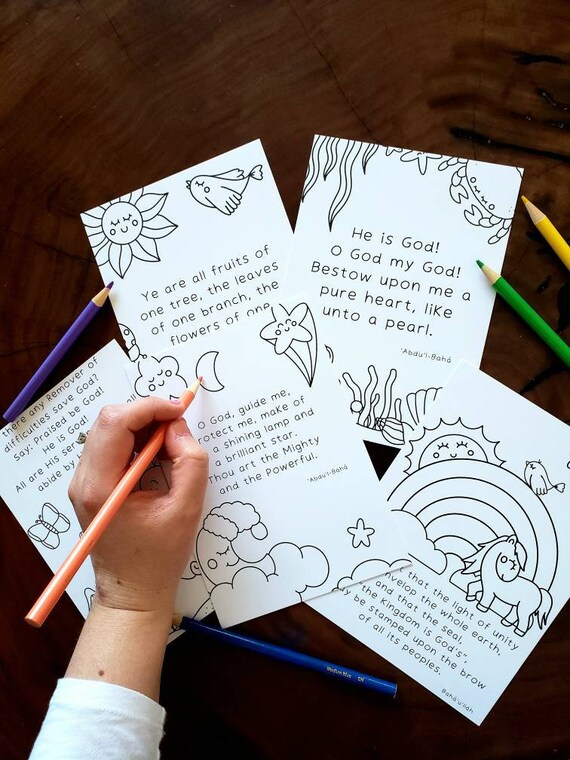 Ye are all fruits of
one tree, the leaves
of one branch, the
flowers of one
He is God!
O God my God!
Bestow upon me a
pure heart, like
unto a pearl.
'Abdu'l-Bahá
there any Remover of
difficulties save God?
Say: Praised be God!
He is God!
All are His ser
abide by
O God, guide me,
rotect me, make of
a shining lamp and
a brilliant star.
Thou art the Mighty
and the Powerful.
'Abdu'l-Bahá
that the light of unity
envelop the whole earth,
and that the seal,
the Kingdom is God's",
be stamped upon the brow
of all its peoples.
Bahá'u'lláh